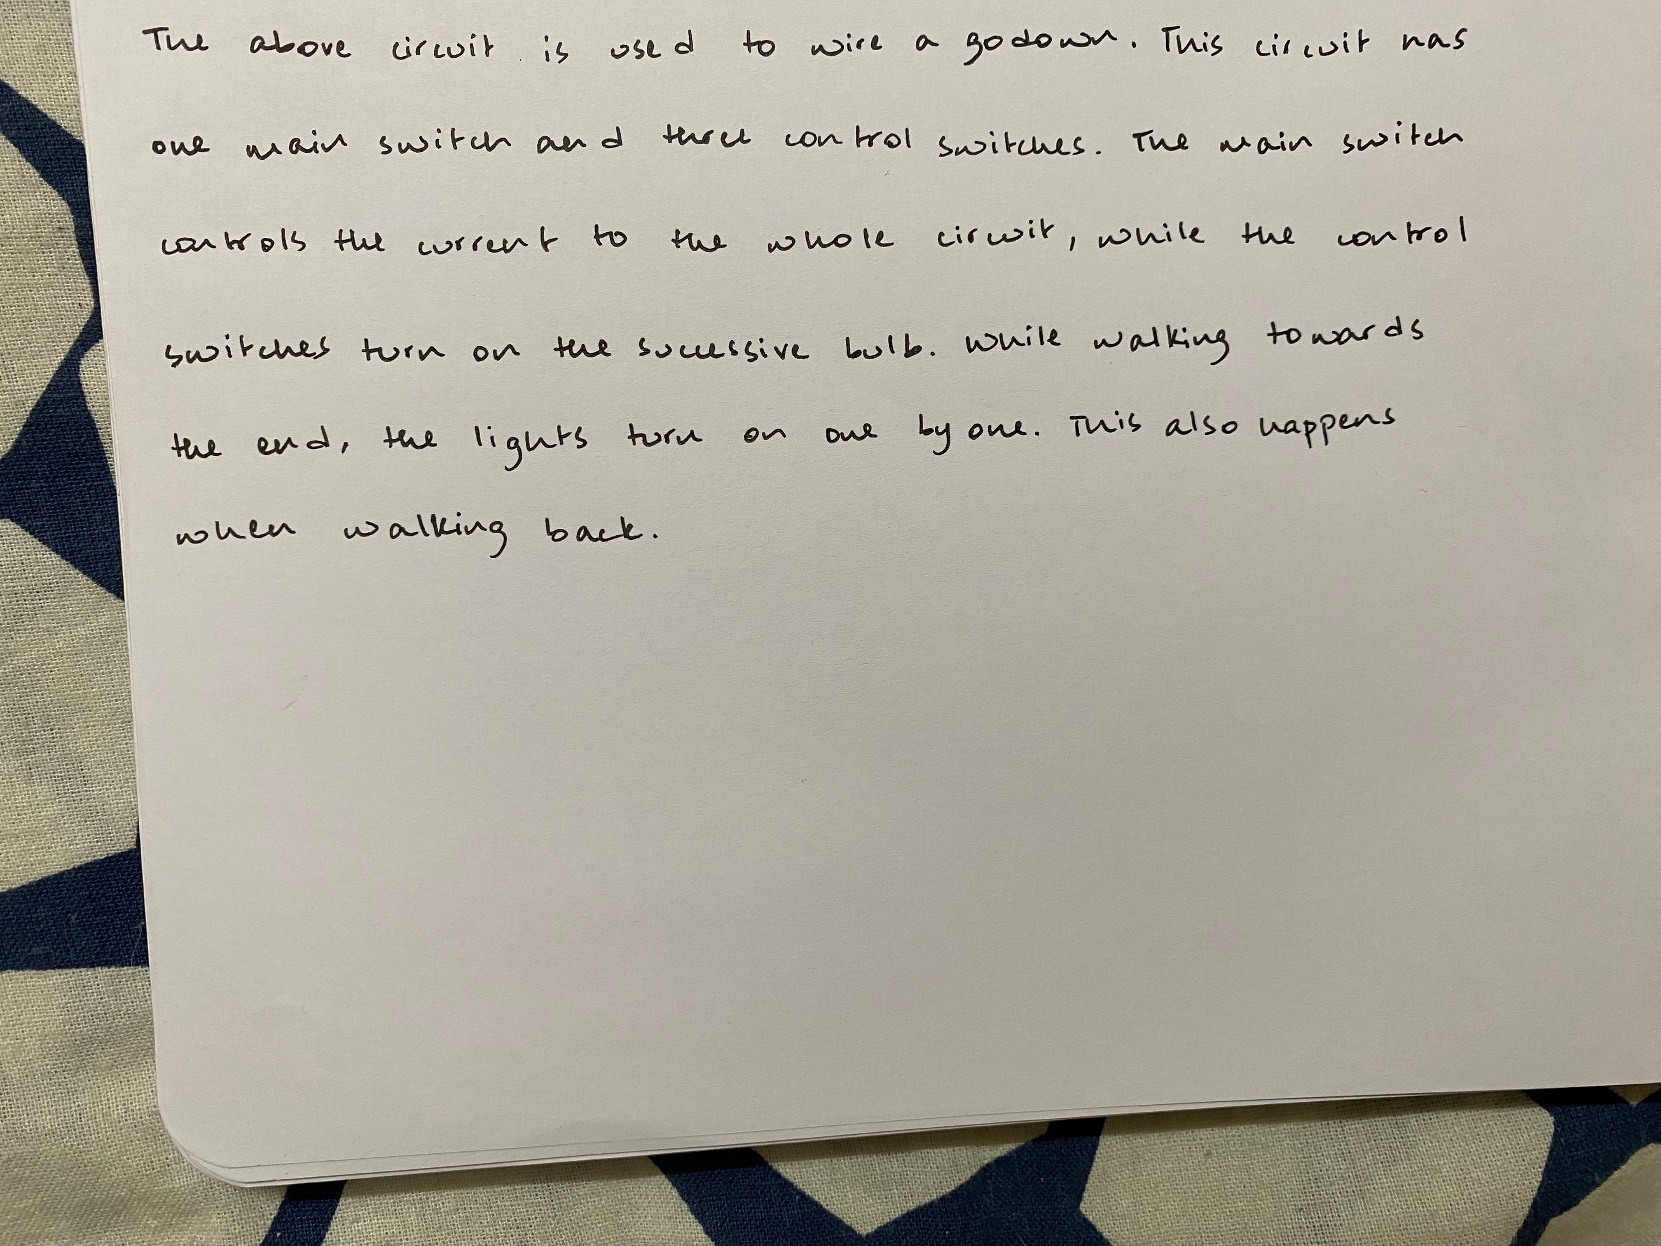 The above circuit is used to wire a godown. This circuit has
one main switch and three control switches. The main switch
controls the current to the whole circuit, while the control
switches turn on the successive bulb. While walking towards
the end, the lights turn on one by one. This also happens
when walking back.